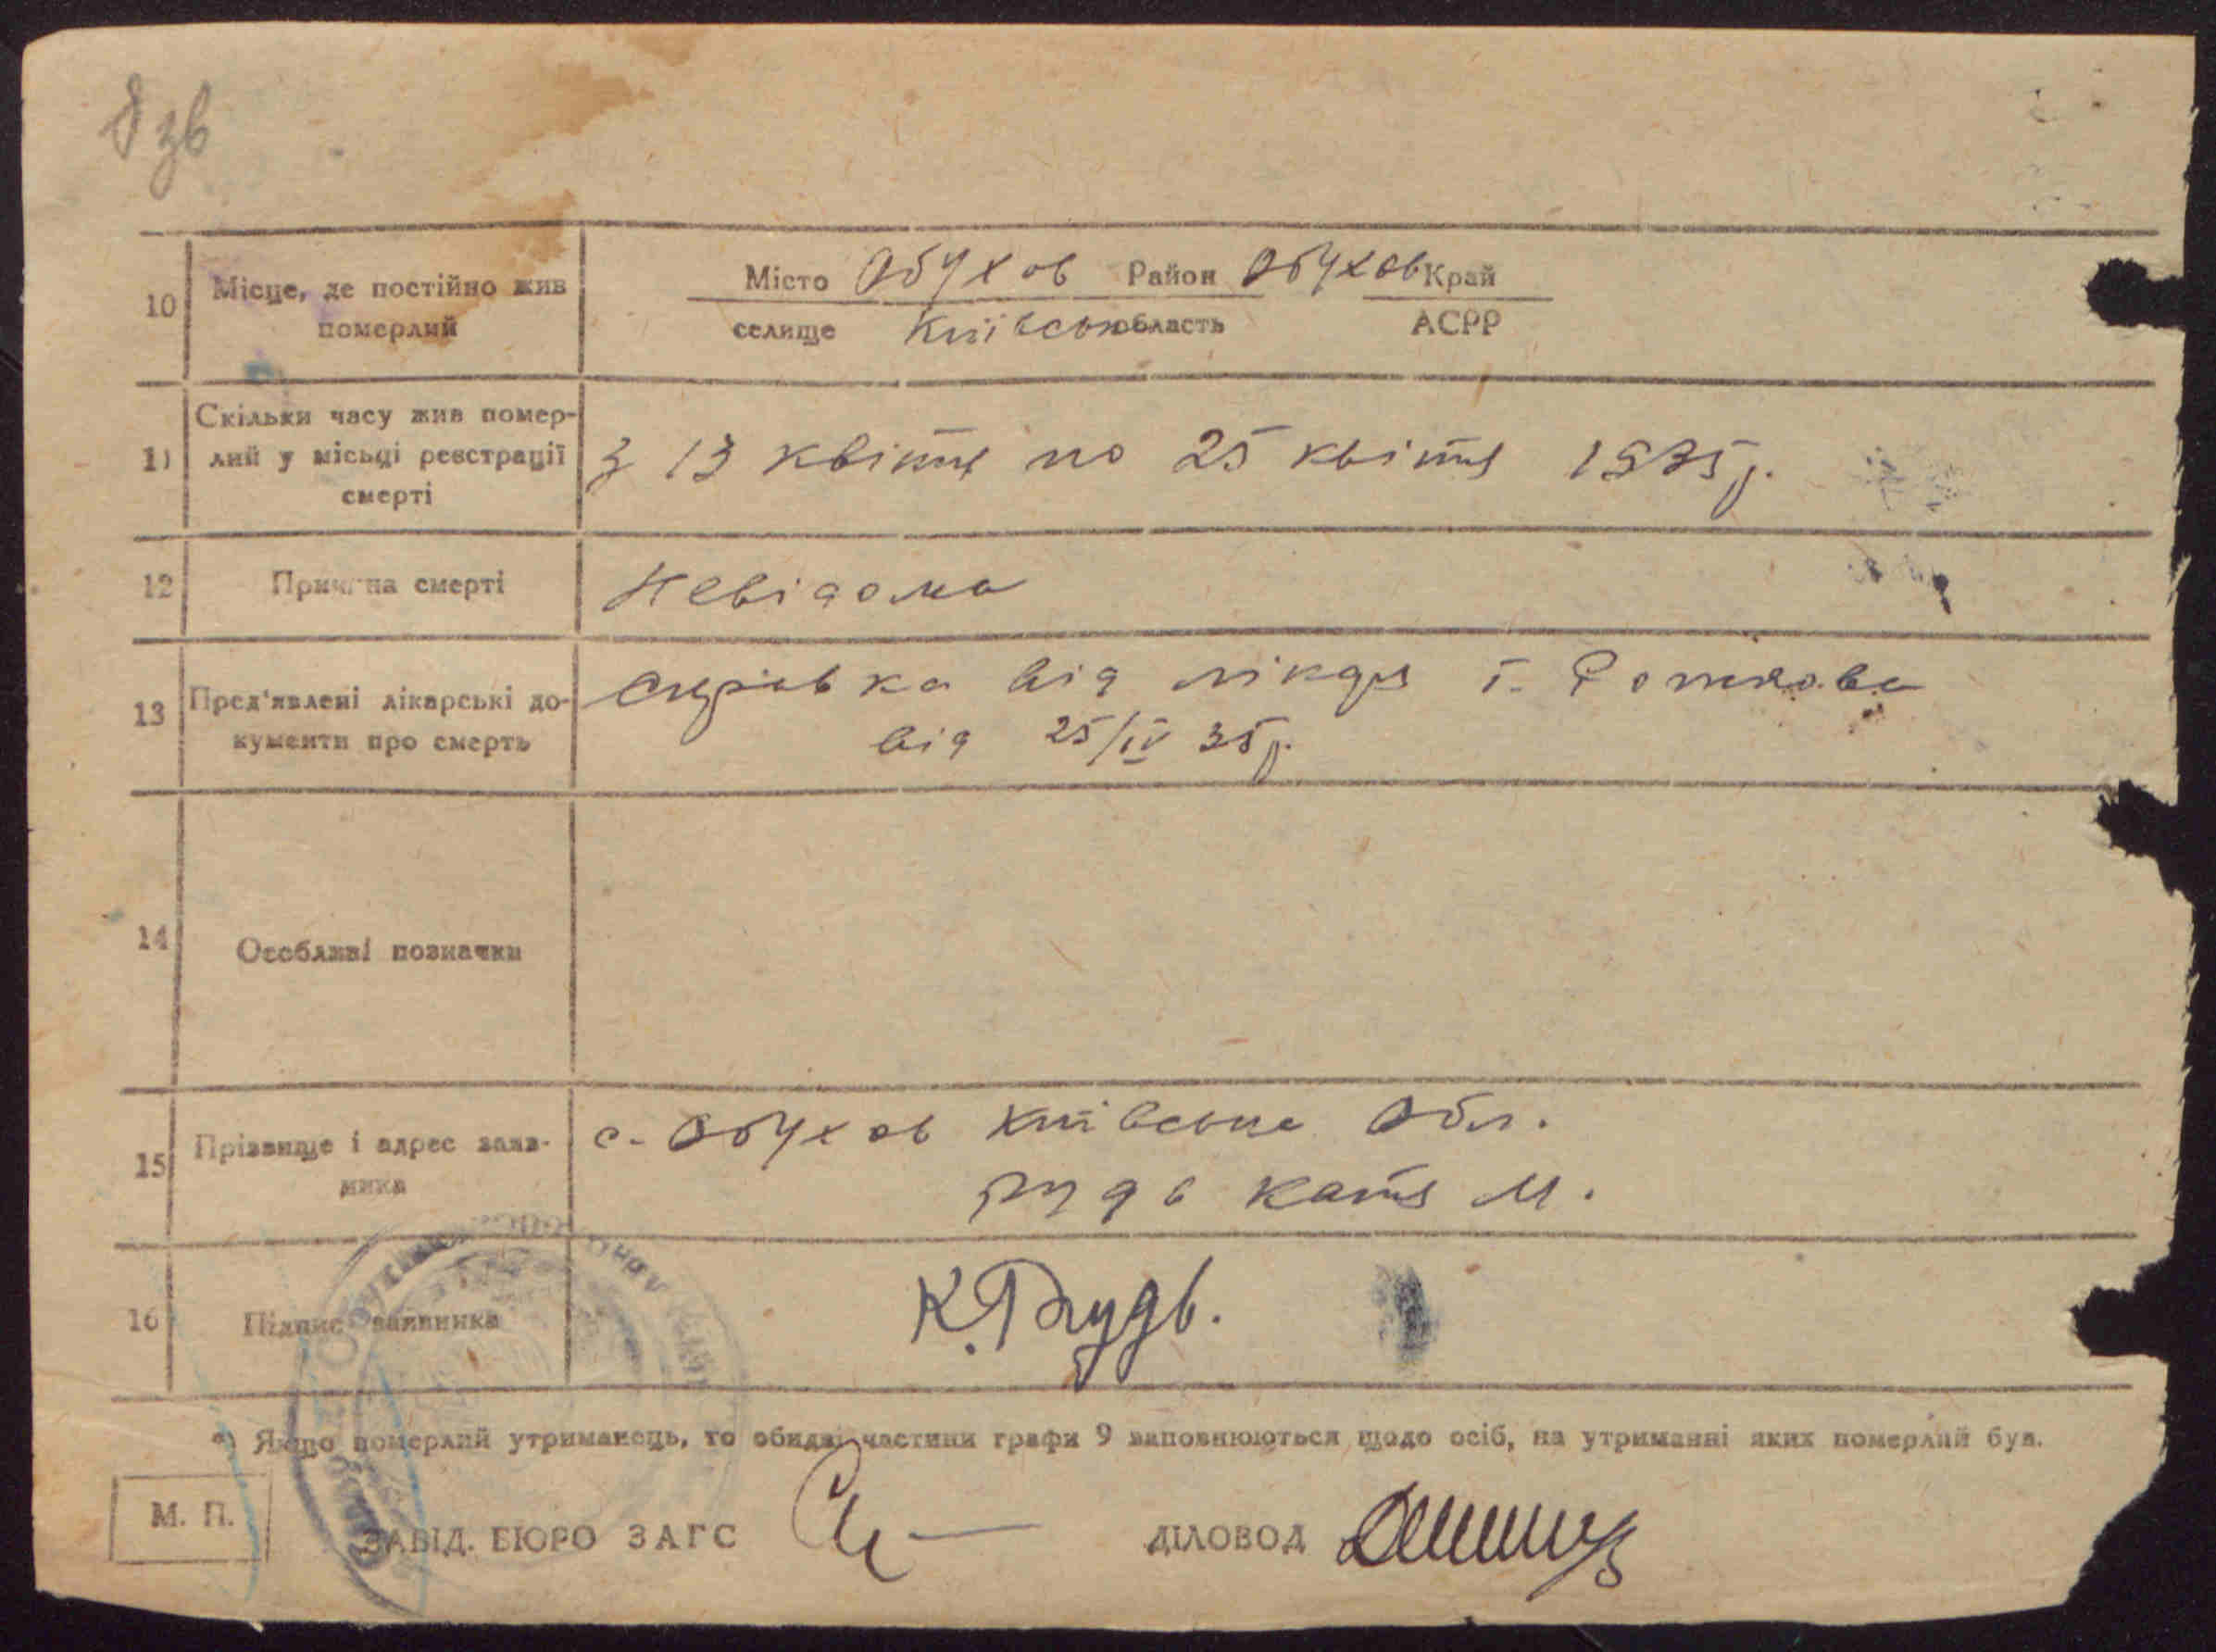 зв
10 Місце, де постійно жив померлий
Місто Обухов Район Обухов Край
селище Київська область АСРР
11 Скільки часу жив помер-
лий у місьці реєстрації
смерті
З 13 квітня по 25 квітня 1935 р.
12 Причина смерті Невідома
13 Пред'явлені лікарські до-
кументи про смерть
Справка від лікаря т.
від 25/IV 35 р.
14 Особливі позначки
15 Прізвище і адрес заяв-
ника
с. Обухов Київська обл.
Рудь Катя М.
16 Підпис заявника К. Рудь.
*) Якщо померлий утриманець, то обидві частини графи 9 заповнюються щодо осіб, на утриманні яких померлий був.
М. П.
ЗАВІД. БЮРО ЗАГС ДІЛОВОД